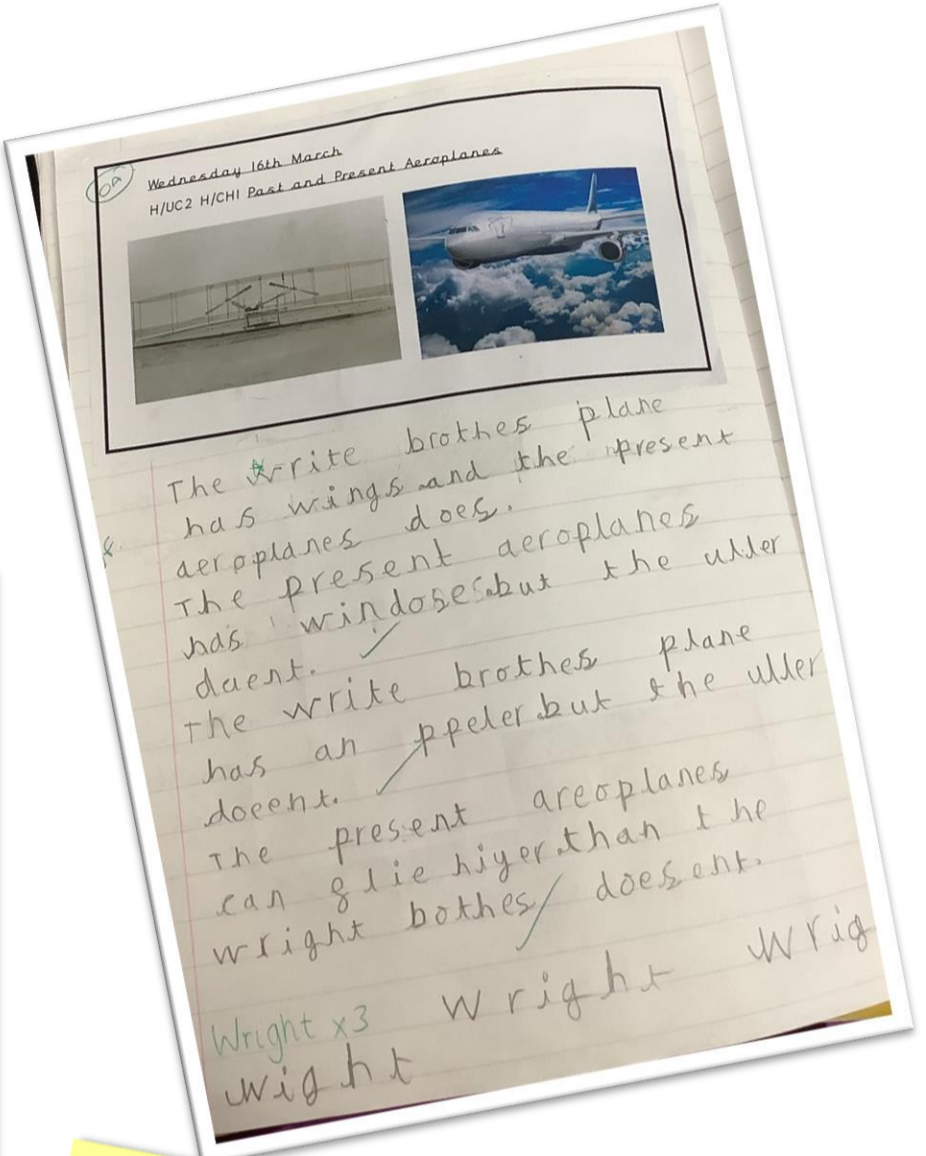 OA
Wednesday 16th March
H/UC2 H/CH1 Past and Present Aeroplanes
The write brothes plane
has wings and the present
aeroplanes does.
The present aeroplanes
has windoses but the uller
daent.
The write brothes plane
has an ppeler but the uller
doeent.
The present areoplanes
can glie hiyer than the
wright bothes doesent.
Wright x3 wright wrig
wight